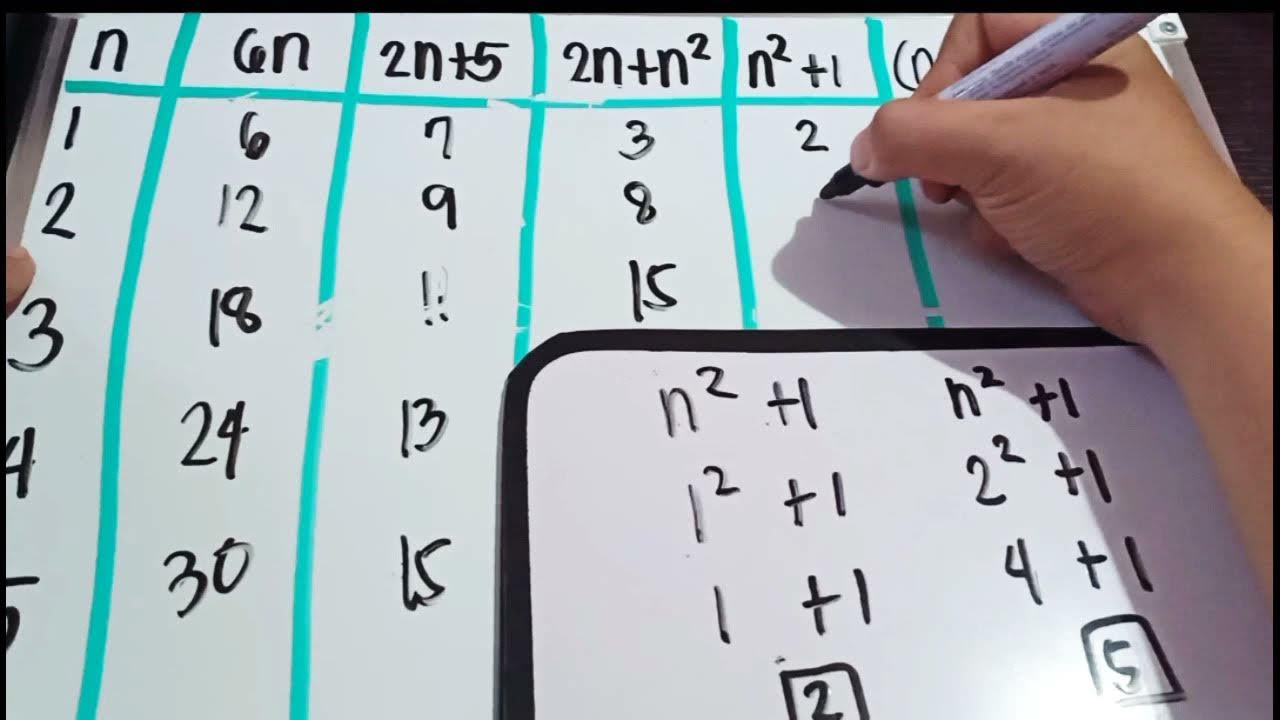 n 6n 2n+5 2n+n² n²+1 (n
1 6 7 3 2
2 12 9 8
3 18 11 15
4 24 13
5 30 15
n²+1 n²+1
1²+1 2²+1
1+1 4+1
2 5